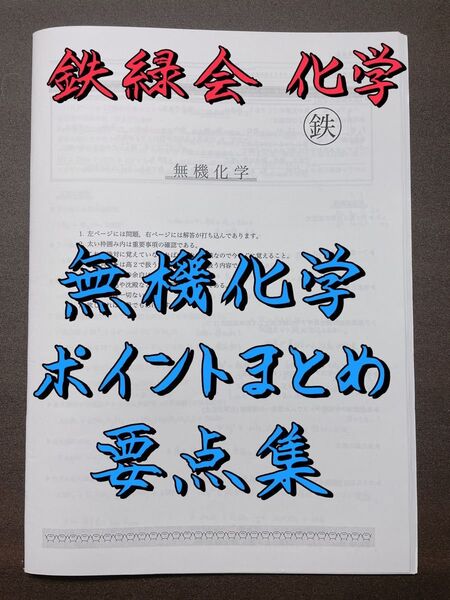 鉄緑会 化学
鉄
無機化学
1. 左ページには問題，右ページには解答が打ち込んであります。
太い枠囲み内は重要事項の確認である。
無機化学
ポイントまとめ
要点集